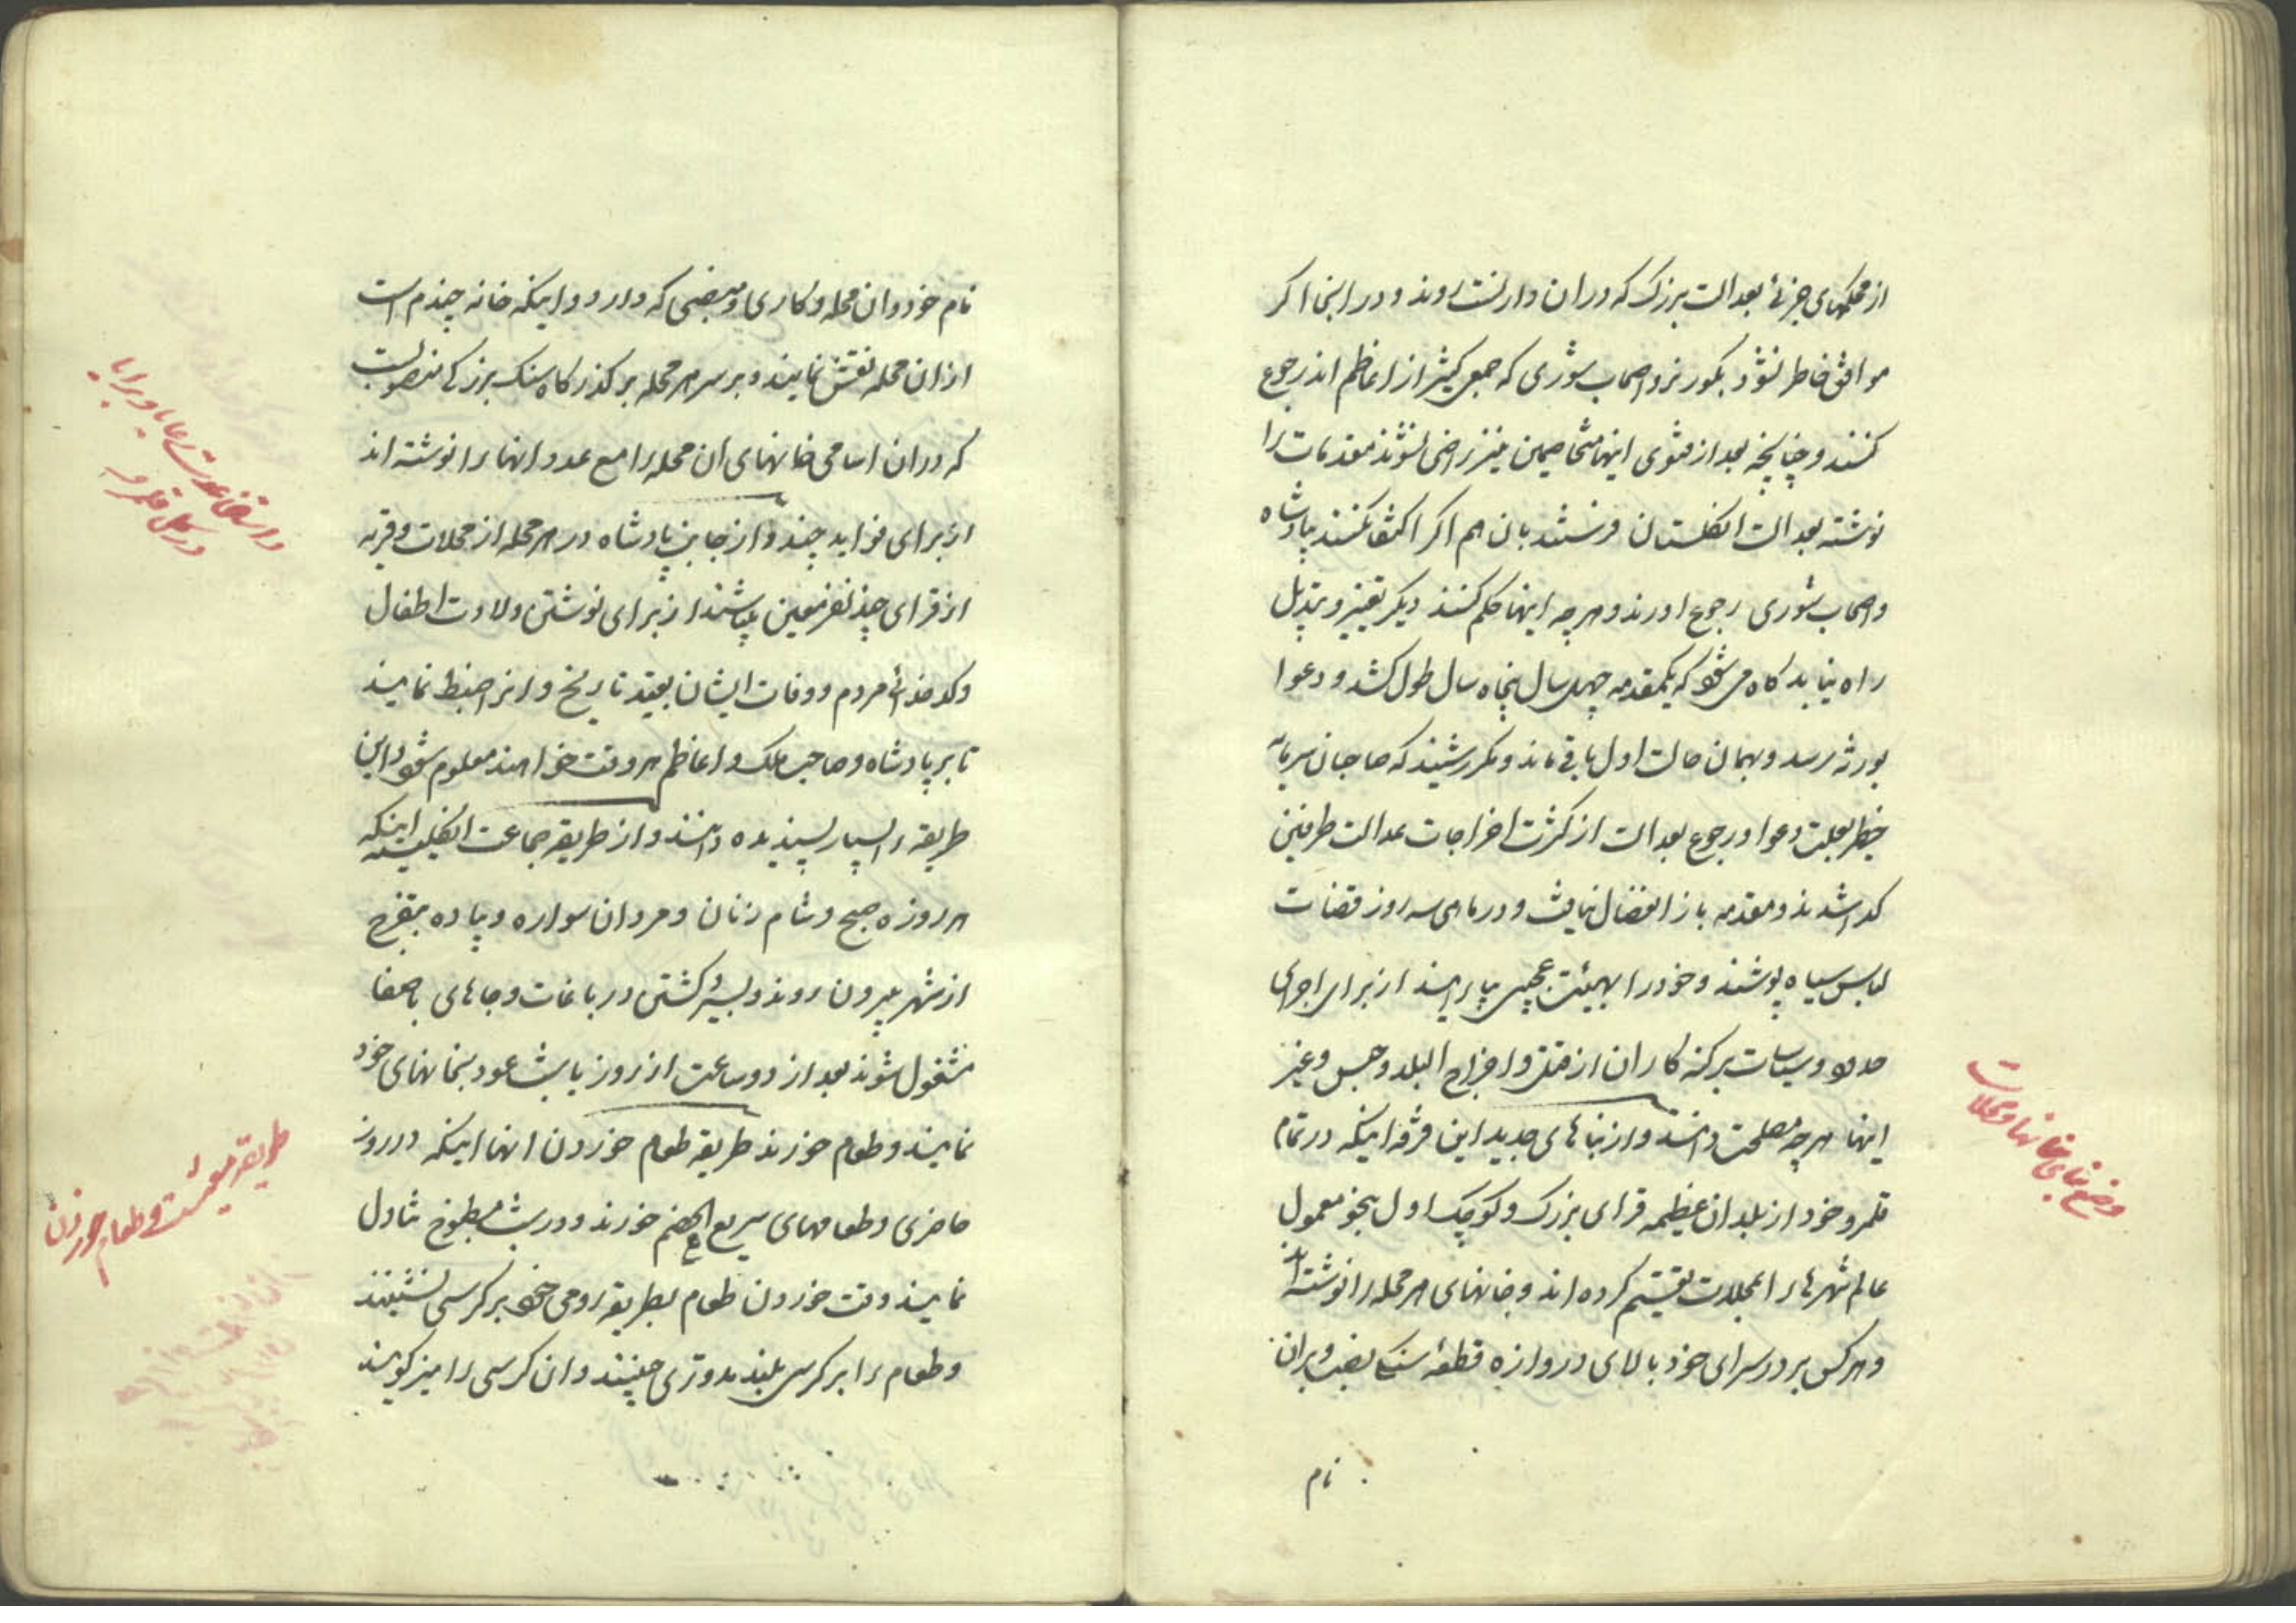 از محکمهای جزئ بعدالت بزرک که دران دارلست روند و در اینجا اکر
موافق خاطر نشود بکورنر و اصحاب شوری که جمعی کثیر از اعاظم اند رجوع
کنند و چنانچه بعد از فتوی اینها متخاصمین نیز راضی نشوند مقدمات را
نوشته بعدالت انکلستان فرستند بان هم اکر اکتفا نکنند بپادشاه
و اصحاب شوری رجوع اورند و هر چه اینها حکم کنند دیکر تغییر و تبدیل
راه نیابد کاه می شود که یکمقدمه چهل سال پنجاه سال طول کشد و دعوا
بورثه رسد و بهمان حالت اول باقی ماند و مکرر شنیدم که صاحبان سرمایه
خطیر بعلت دعوا و رجوع بعدالت از کثرت اخراجات عدالت طرفین
کدا شدند و مقدمه باز انفصال نیافت و در ماهی سه روز قضات
لباس سیاه پوشند و خود را بهیئت عجیبی بیارایند از برای اجرای
حدود و سیاسات بر کنه کاران از قتل و اخراج البلد و حبس و غیر
اینها هر چه مصلحت دانند و از بناهای جدید این فرقه اینکه در تمام
قلمرو خود از بلدان عظیمه قرای بزرک و کوچک اول بنحو معمول
عالم شهرها را بمحلات تقسیم کرده اند و خانهای هر محله را نوشته اند
و هر کس بر در سرای خود بالای دروازه قطعهٔ سنکی نصب و بران
نام
وضع بنای خانها و محلات
نام خود و ان محله و کاری و منصبی که دارد و اینکه خانه چندم است
ازان محله نقش نمایند و بر سر هر محله بر کذر کاه سنک بزرکی منصوبست
که دران اسامی خانهای ان محله را مع عدد انها را نوشته اند
از برای فواید چند و از جانب پادشاه در هر محله از محلات و قریه
از قرای چند نفر معین میباشند از برای نوشتن ولادت اطفال
و کدخدائی مردم و وفات ایشان بقید تاریخ و انرا ضبط نمایند
تا بر پادشاه و صاحب ملک و اعاظم هر وقت خواهند معلوم شود و این
طریقه را بسیار پسندیده دانند و از طریقه جماعت انکلیسیه اینکه
هر روزه صبح و شام زنان و مردان سواره و پیاده بتفرج
از شهر بیرون روند و بسیر و کشتن در باغات و جاهای با صفا
مشغول شوند بعد از دو ساعت از روز یا شب عود بخانهای خود
نمایند و طعام خورند طریقه طعام خوردن انها اینکه در روز
حاضری و طعامهای سریع الهضم خورند و در شب مطبوخ تناول
نمایند وقت خوردن طعام بطریقه رومی خود بر کرسی نشینند
و طعام را بر کرسی بلند مدوری چینند و ان کرسی را میز کویند
در کل قلمرو
طریقه معیشت و طعام خوردن